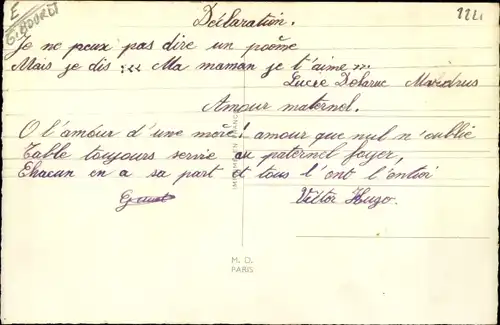 E
G. BOURET
Déclaration.
1221
Je ne peux pas dire un poême
Mais je dis ::: Ma maman je t'aime ...
Lucie Delarue Mardrus
Amour maternel.
O l'amour d'une mère! amour que nul n'oublie
Table toujours servie au paternel foyer,
Chacun en a sa part et tous l'ont l'entier
Victor Hugo.
M. D.
PARIS